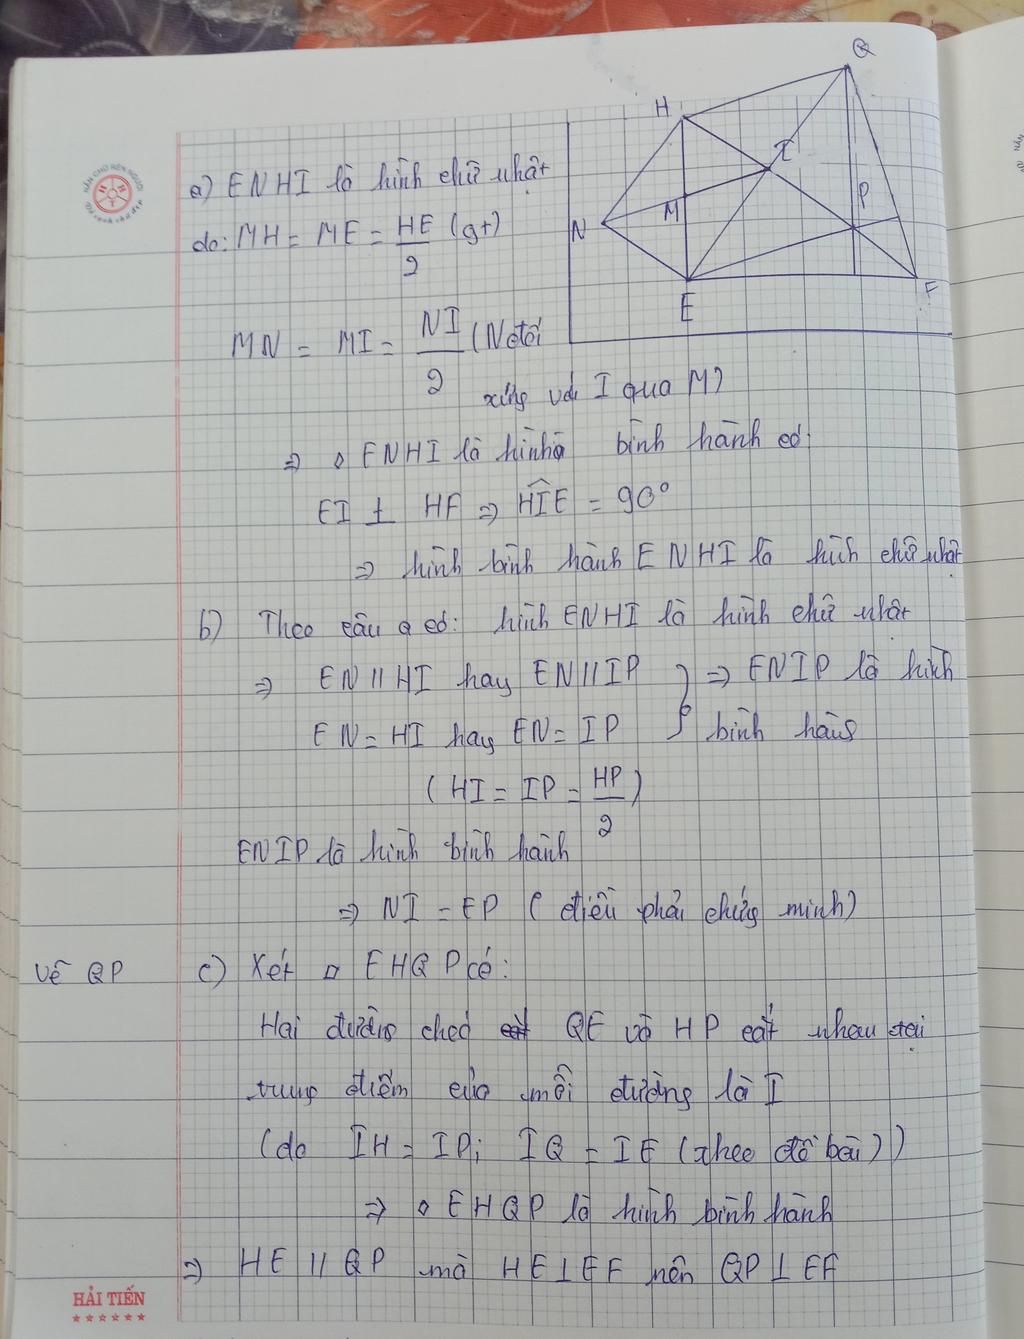 Q
H
I
M
P
N
E
F
a) ENHI là hình chữ nhật
do: MH = ME = HE/2 (gt)
MN = MI = NI/2 (N đối
xứng với I qua M)
⇒ ◊ ENHI là hình bình hành có:
EI ⊥ HF ⇒ HIE = 90°
⇒ hình bình hành ENHI là hình chữ nhật
b) Theo câu a có: hình ENHI là hình chữ nhật
⇒ EN // HI hay EN // IP } ⇒ ENIP là hình
EN = HI hay EN = IP } bình hành
(HI = IP = HP/2)
ENIP là hình bình hành
⇒ NI = EP (điều phải chứng minh)
Vẽ QP c) Xét ◊ EHQP có:
Hai đường chéo QE và HP cắt nhau tại
trung điểm của mỗi đường là I
(do IH = IP; IQ = IE (theo đề bài))
⇒ ◊ EHQP là hình bình hành
⇒ HE // QP mà HE ⊥ EF nên QP ⊥ EF
HẢI TIẾN